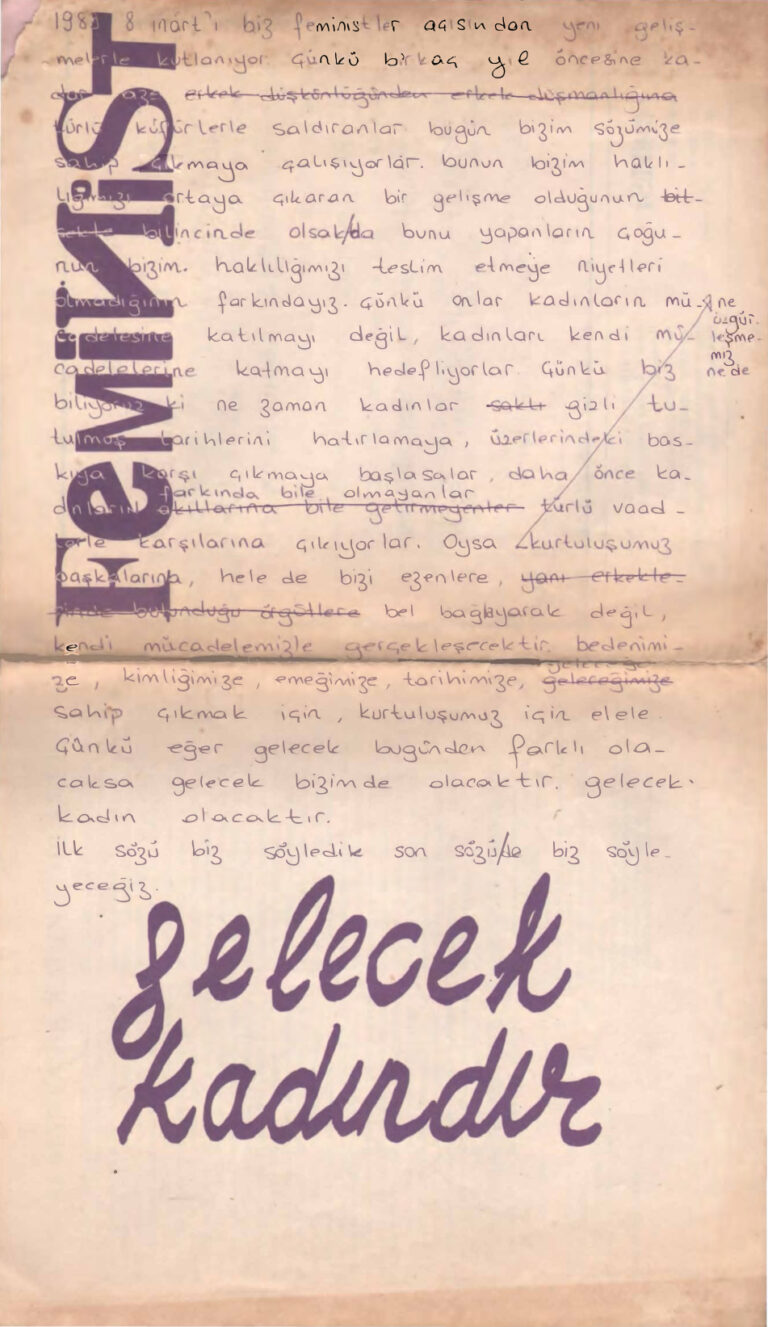 FEMİNİST
198 8 mart'ı biz feministler açısından yeni geliş-
melerle kutlanıyor. Çünkü birkaç yıl öncesine ka-
dar bize erkek düşkünlüğünden erkek düşmanlığına
türlü küfürlerle saldıranlar bugün bizim sözümüze
sahip çıkmaya çalışıyorlar. bunun bizim haklı-
lığımızı ortaya çıkaran bir gelişme olduğunun bit-
sekte bilincinde olsak/da bunu yapanların çoğu-
nun bizim. haklılığımızı teslim etmeye niyetleri
olmadığının farkındayız. Çünkü onlar kadınların mü-
cadelesine katılmayı değil, kadınları kendi mü-
cadelelerine katmayı hedefliyorlar. Çünkü biz
biliyoruz ki ne zaman kadınlar saklı gizli tu-
tulmuş tarihlerini hatırlamaya, üzerlerindeki bas-
kıya karşı çıkmaya başlasalar, daha önce ka-
farkında bile olmayanlar
dınların akıllarına bile getirmeyenler türlü vaad-
lerle karşılarına çıkıyorlar. Oysa kurtuluşumuz
ne
özgür-
leşme-
miz
ne de
başkalarına, hele de bizi ezenlere, yani erkekle-
rinde bulunduğu örgütlere bel bağlayarak değil,
kendi mücadelemizle gerçekleşecektir. bedenimi-
geleceğe
ze, kimliğimize, emeğimize, tarihimize, geleceğimize
sahip çıkmak için, kurtuluşumuz için elele.
Çünkü eğer gelecek bugünden farklı ola-
caksa gelecek bizimde olacaktır. gelecek
kadın olacaktır.
İlk sözü biz söyledik son sözü/de biz söyle-
yeceğiz.
gelecek
kadındır